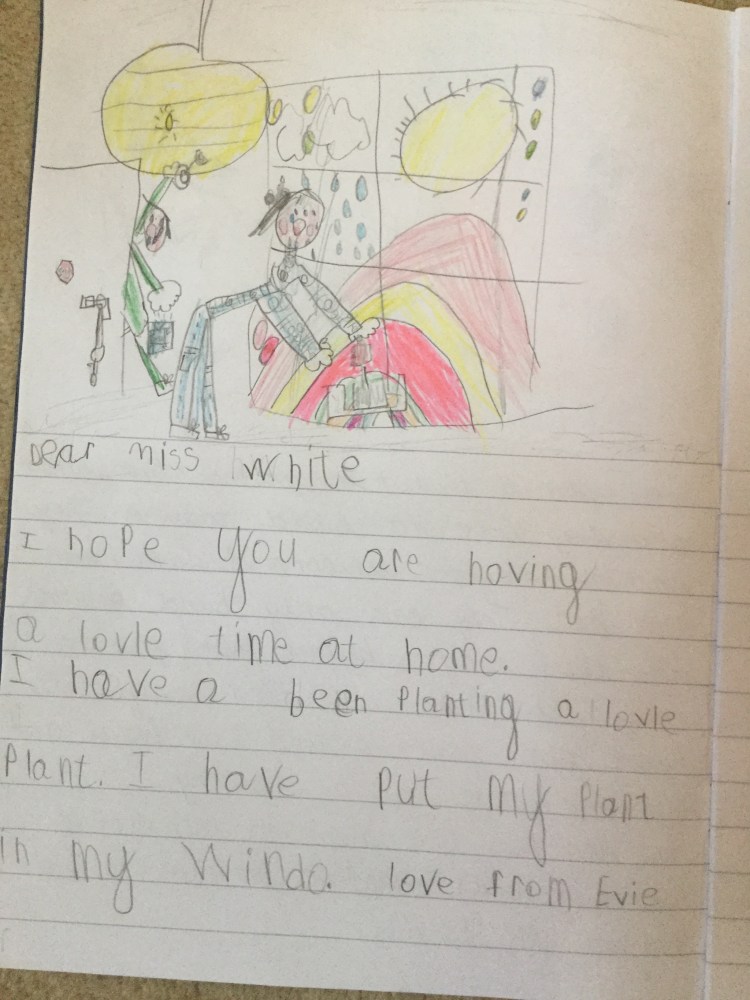 Dear miss white
I hope you are having
a lovle time at home.
I have a been Planting a lovle
Plant. I have put my Plant
in my Windo. love from Evie